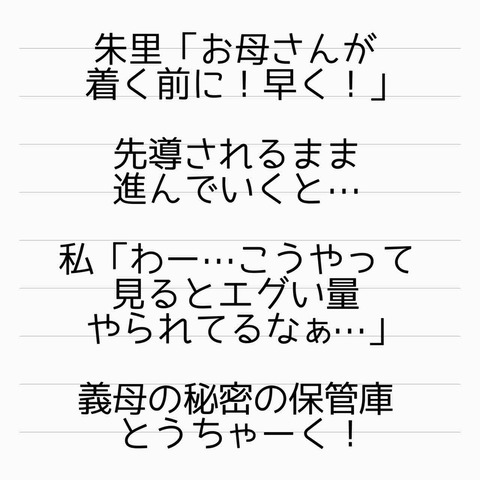 朱里「お母さんが
着く前に！早く！」
先導されるまま
進んでいくと…
私「わー…こうやって
見るとエグい量
やられてるなぁ…」
義母の秘密の保管庫
とうちゃーく！